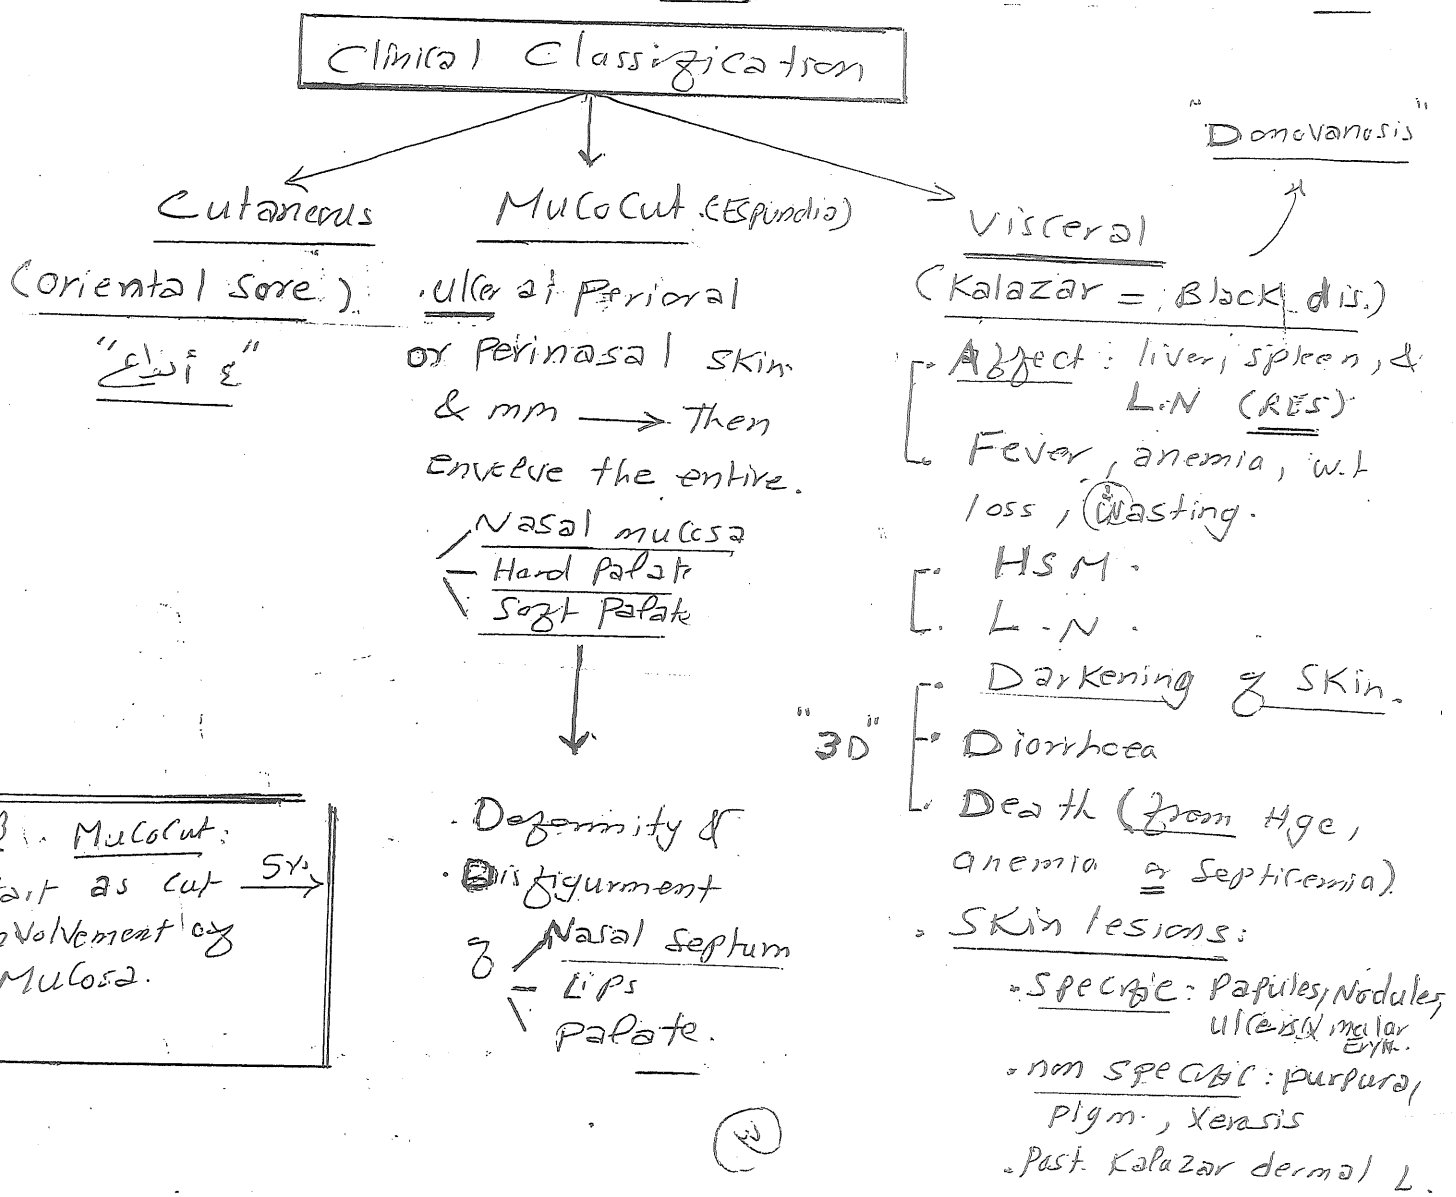 Clinical Classification
Cutaneous
(oriental sore)
"٤ أنواع"
MucoCut. (Espundia)
. ulcer at perioral
or perinasal skin
& mm → Then
envelve the entire.
Nasal mucosa
Hard Palate
Soft Palate
. Deformity &
. Disfigurment
of Nasal Septum
Lips
palate.
MucoCut:
as cut 5y. →
of
Mucosa.
"Donovanosis"
Visceral
(Kalazar = Black dis.)
. Affect: liver, spleen, &
L.N (RES)
. Fever, anemia, w.t
loss, wasting.
. HSM.
. L.N.
"3D"
. Darkening of skin.
. Diorrhoea
. Death (from Hge,
anemia or septicemia).
. Skin lesions:
. Specific: Papules, Nodules,
ulcers & malar
Eryth.
. non specific: purpura,
pigm., Xerosis
. Post. Kalazar dermal L.